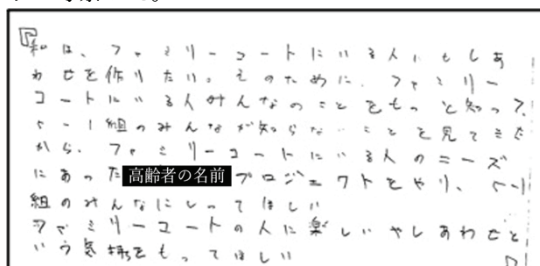 『私は、ファミリーコートにいる人、もしあ
わせを作りたい。そのために、ファミリー
コートにいる人みんなのことをもっと知って、
5-1組のみんなが知らないことを見てきた
から、ファミリーコートにいる人のニーズ
にあった高齢者の名前プロジェクトをやり、5-1
組のみんなにしってほしい
ファミリーコートの人に楽しいやしあわせと
いう気持をもってほしい 』